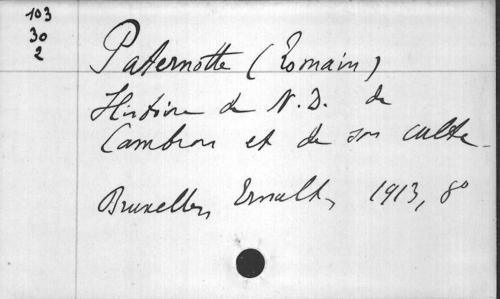 103
30
2
Paternotte (Romain)
Histoire de N. D. de
Cambron et de son culte.
Bruxelles, Ernult, 1913, 8°